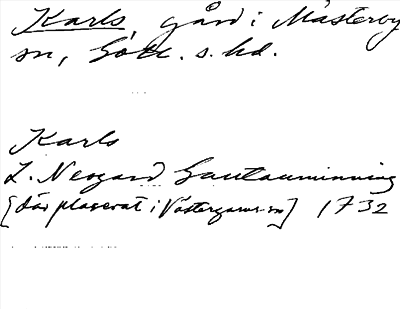 Karls gård i Mästerby
sn, Gotl. s. hd.
Karls
L. Neogard Gautauminning
[där placerat i Västergarns sn] 1732